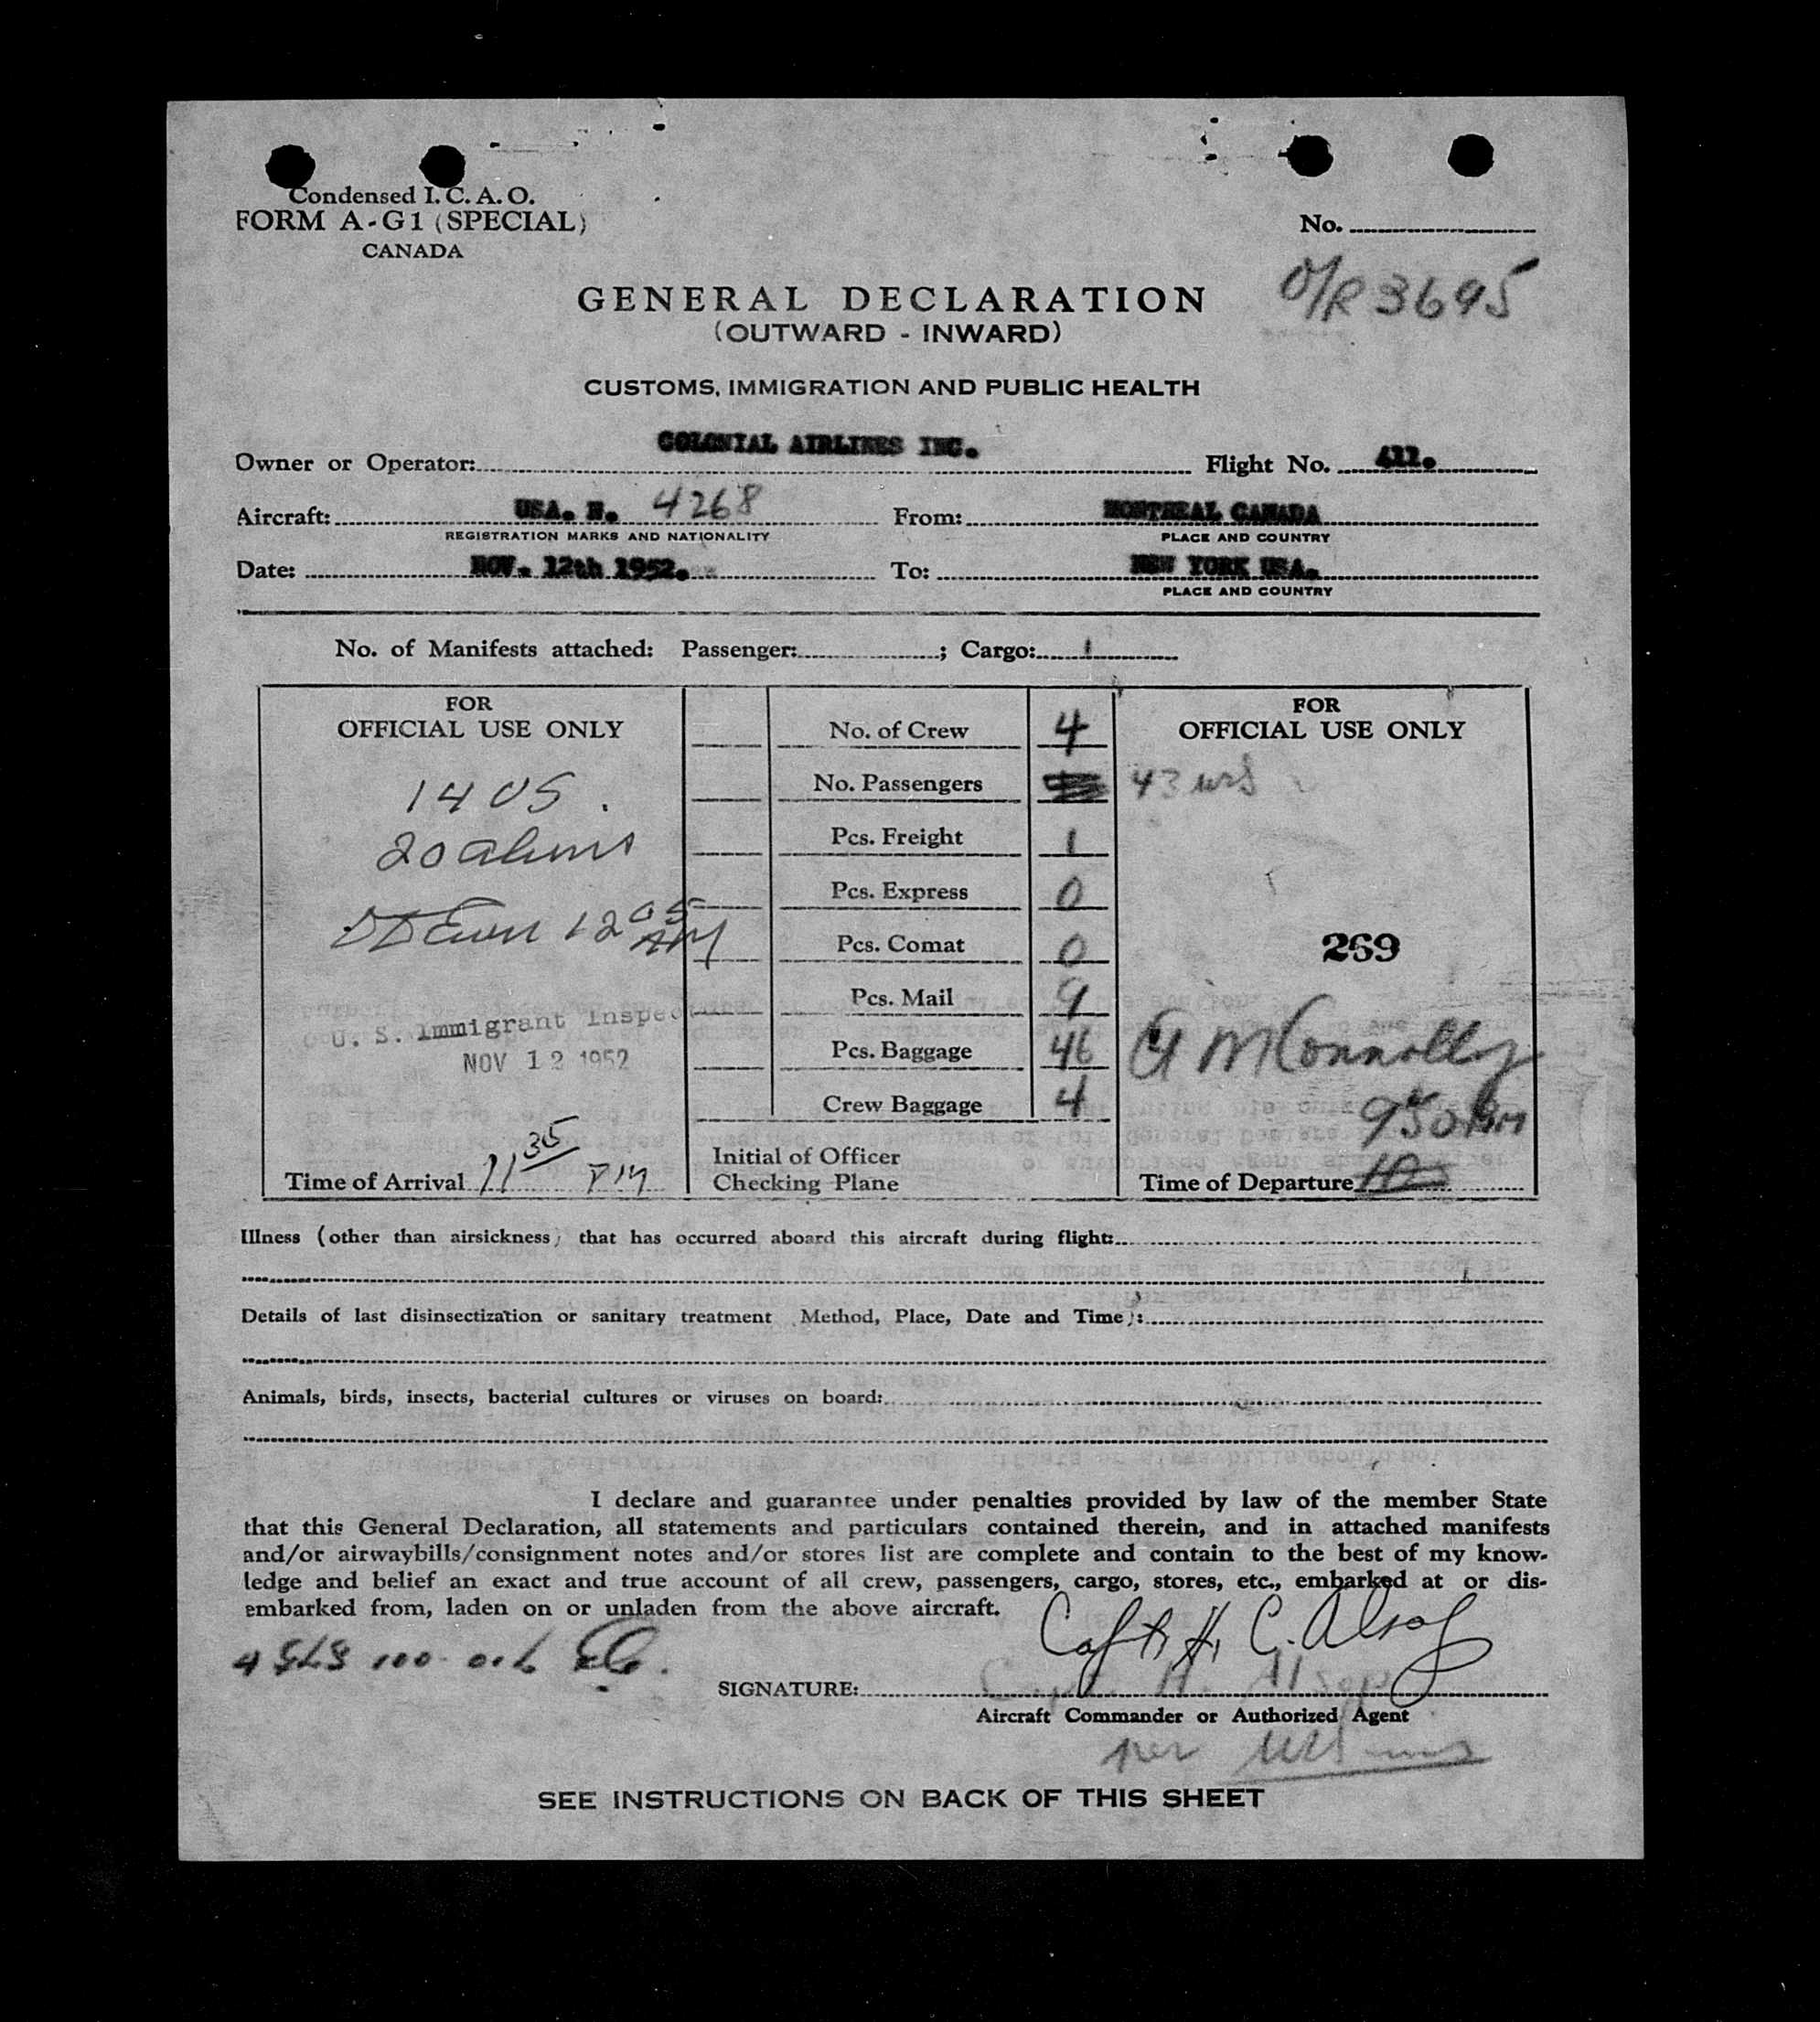 Condensed I. C. A. O.
FORM A-G1 (SPECIAL)
CANADA
No.
O/R 3695
GENERAL DECLARATION
(OUTWARD - INWARD)
CUSTOMS, IMMIGRATION AND PUBLIC HEALTH
Owner or Operator: COLONIAL AIRLINES INC. Flight No. 411.
Aircraft: USA. N. 4268 From: MONTREAL CANADA
REGISTRATION MARKS AND NATIONALITY PLACE AND COUNTRY
Date: NOV. 12th 1952. To: NEW YORK USA.
PLACE AND COUNTRY
No. of Manifests attached: Passenger: ; Cargo: 1
FOR
OFFICIAL USE ONLY
14 US.
20 aliens
12 05 AM
U. S. Immigrant Inspec
NOV 12 1952
Time of Arrival 11 35 PM
No. of Crew 4
No. Passengers
Pcs. Freight 1
Pcs. Express 0
Pcs. Comat 0
Pcs. Mail 9
Pcs. Baggage 46
Crew Baggage 4
Initial of Officer
Checking Plane
FOR
OFFICIAL USE ONLY
43
269
Connolly
9 50 PM
Time of Departure
Illness (other than airsickness) that has occurred aboard this aircraft during flight:
Details of last disinsectization or sanitary treatment Method, Place, Date and Time):
Animals, birds, insects, bacterial cultures or viruses on board:
I declare and guarantee under penalties provided by law of the member State
that this General Declaration, all statements and particulars contained therein, and in attached manifests
and/or airwaybills/consignment notes and/or stores list are complete and contain to the best of my know-
ledge and belief an exact and true account of all crew, passengers, cargo, stores, etc., embarked at or dis-
embarked from, laden on or unladen from the above aircraft.
Capt. H. C. Alsop
SIGNATURE: Capt. H. Alsop
Aircraft Commander or Authorized Agent
per
SEE INSTRUCTIONS ON BACK OF THIS SHEET